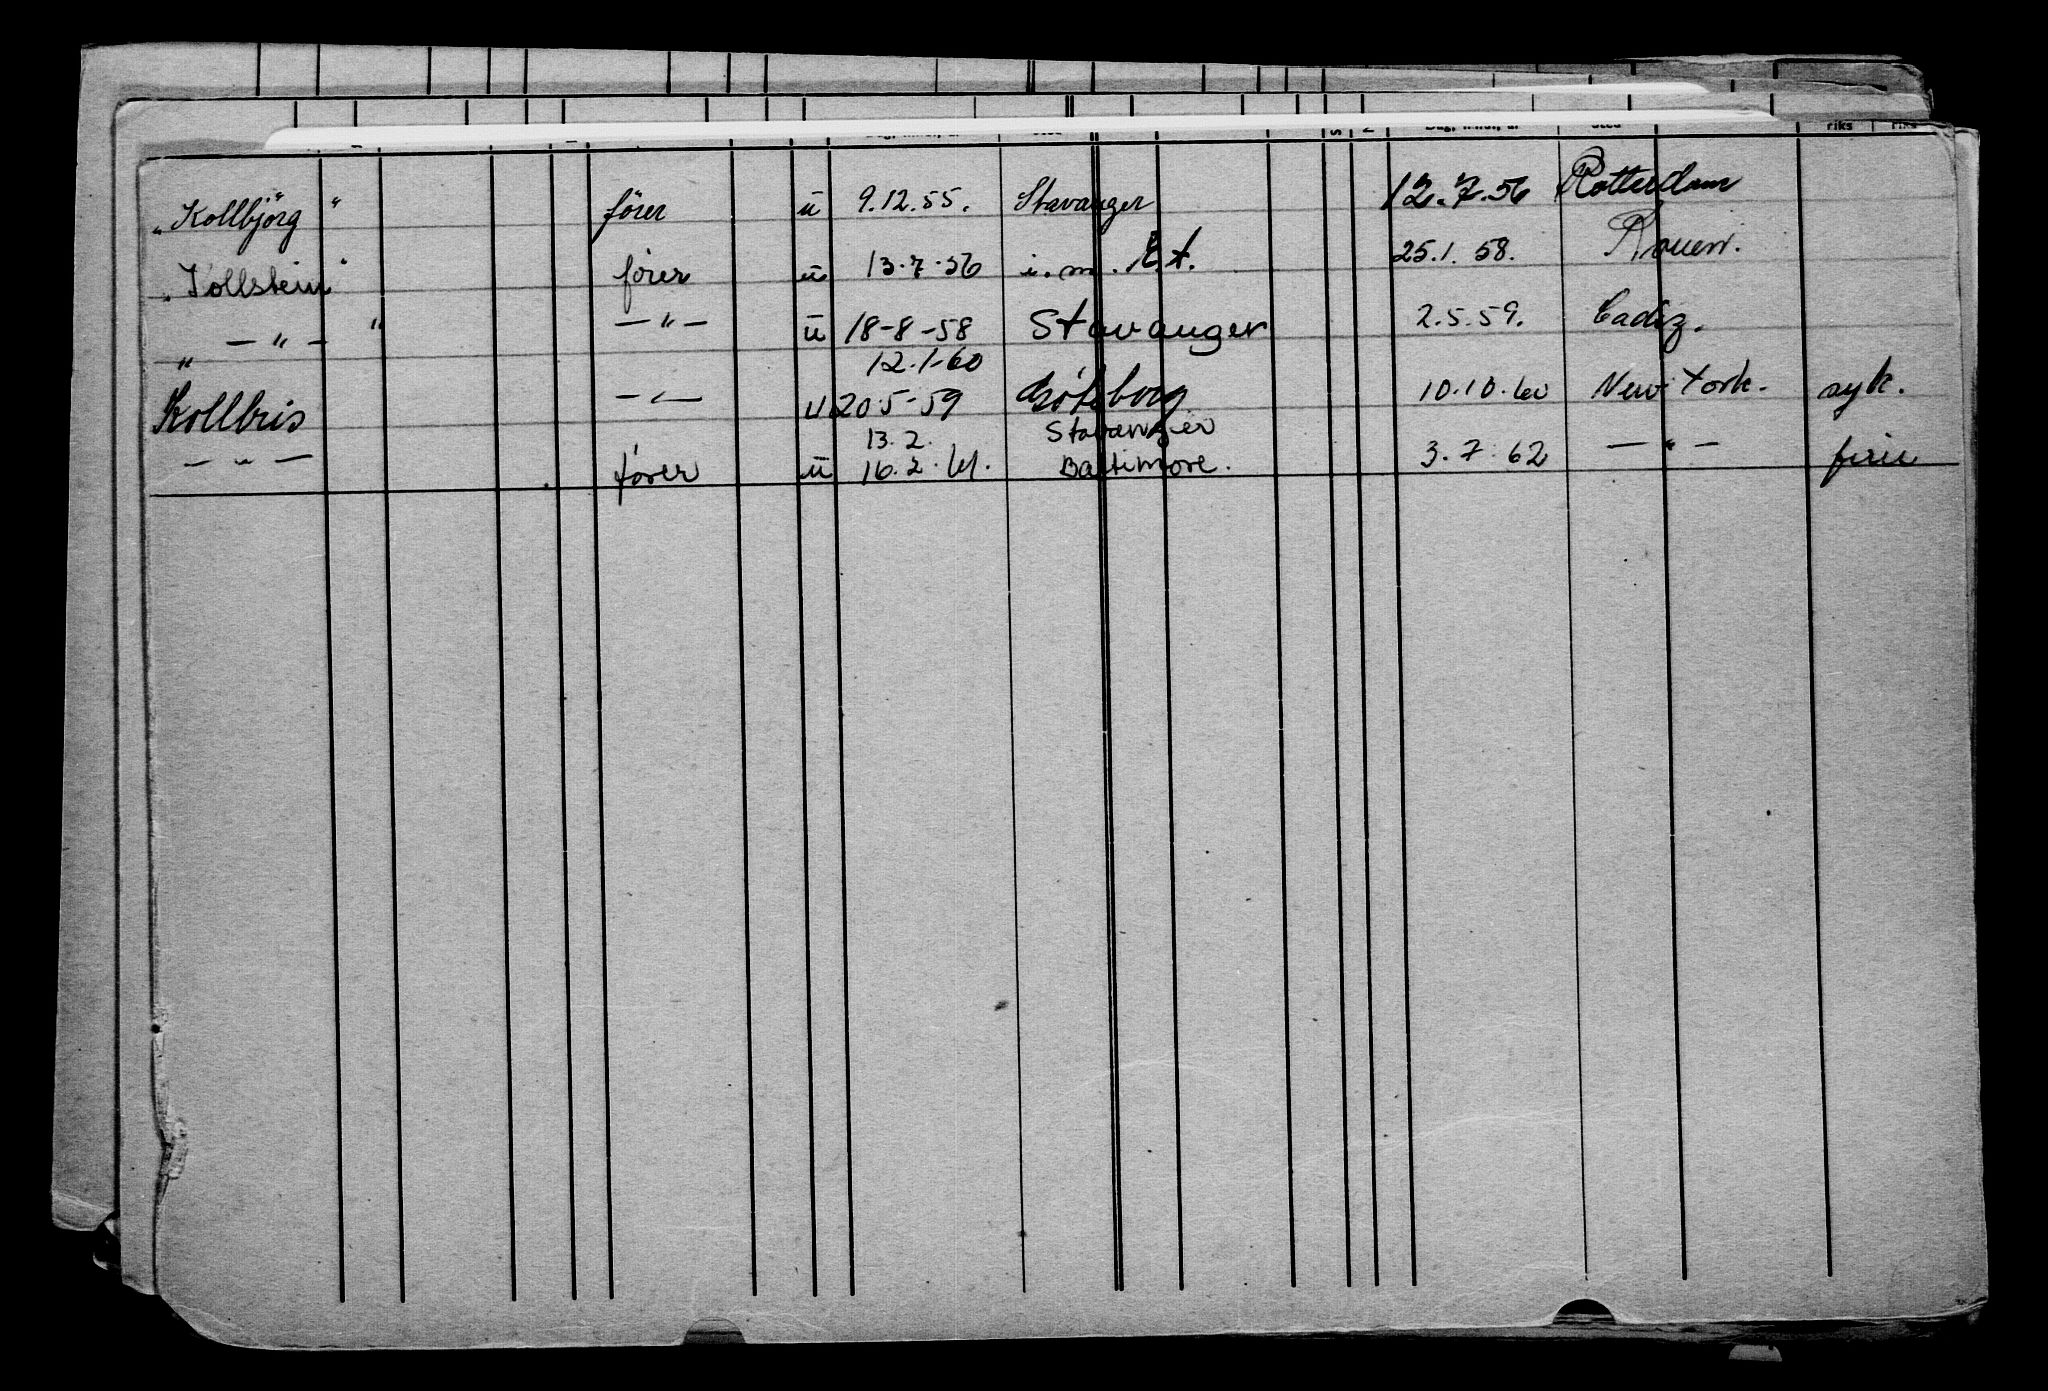 riks
„Kollbjörg" förer u 9.12.55. Stavanger 12.7.56 Rotterdam
„Kollstein" förer u 13.7.56 i.m. 25.1.58. Rouen.
„ — " — " — " — u 18-8-58 Stavanger 2.5.59. Cadiz.
12.1-60
Kollbris — " — u 20.5-59 Göteborg 10.10.60 New York. syk.
13.2. Stavanger
— " — förer u 16.2.61. Baltimore. 3.7.62 — " — ferie